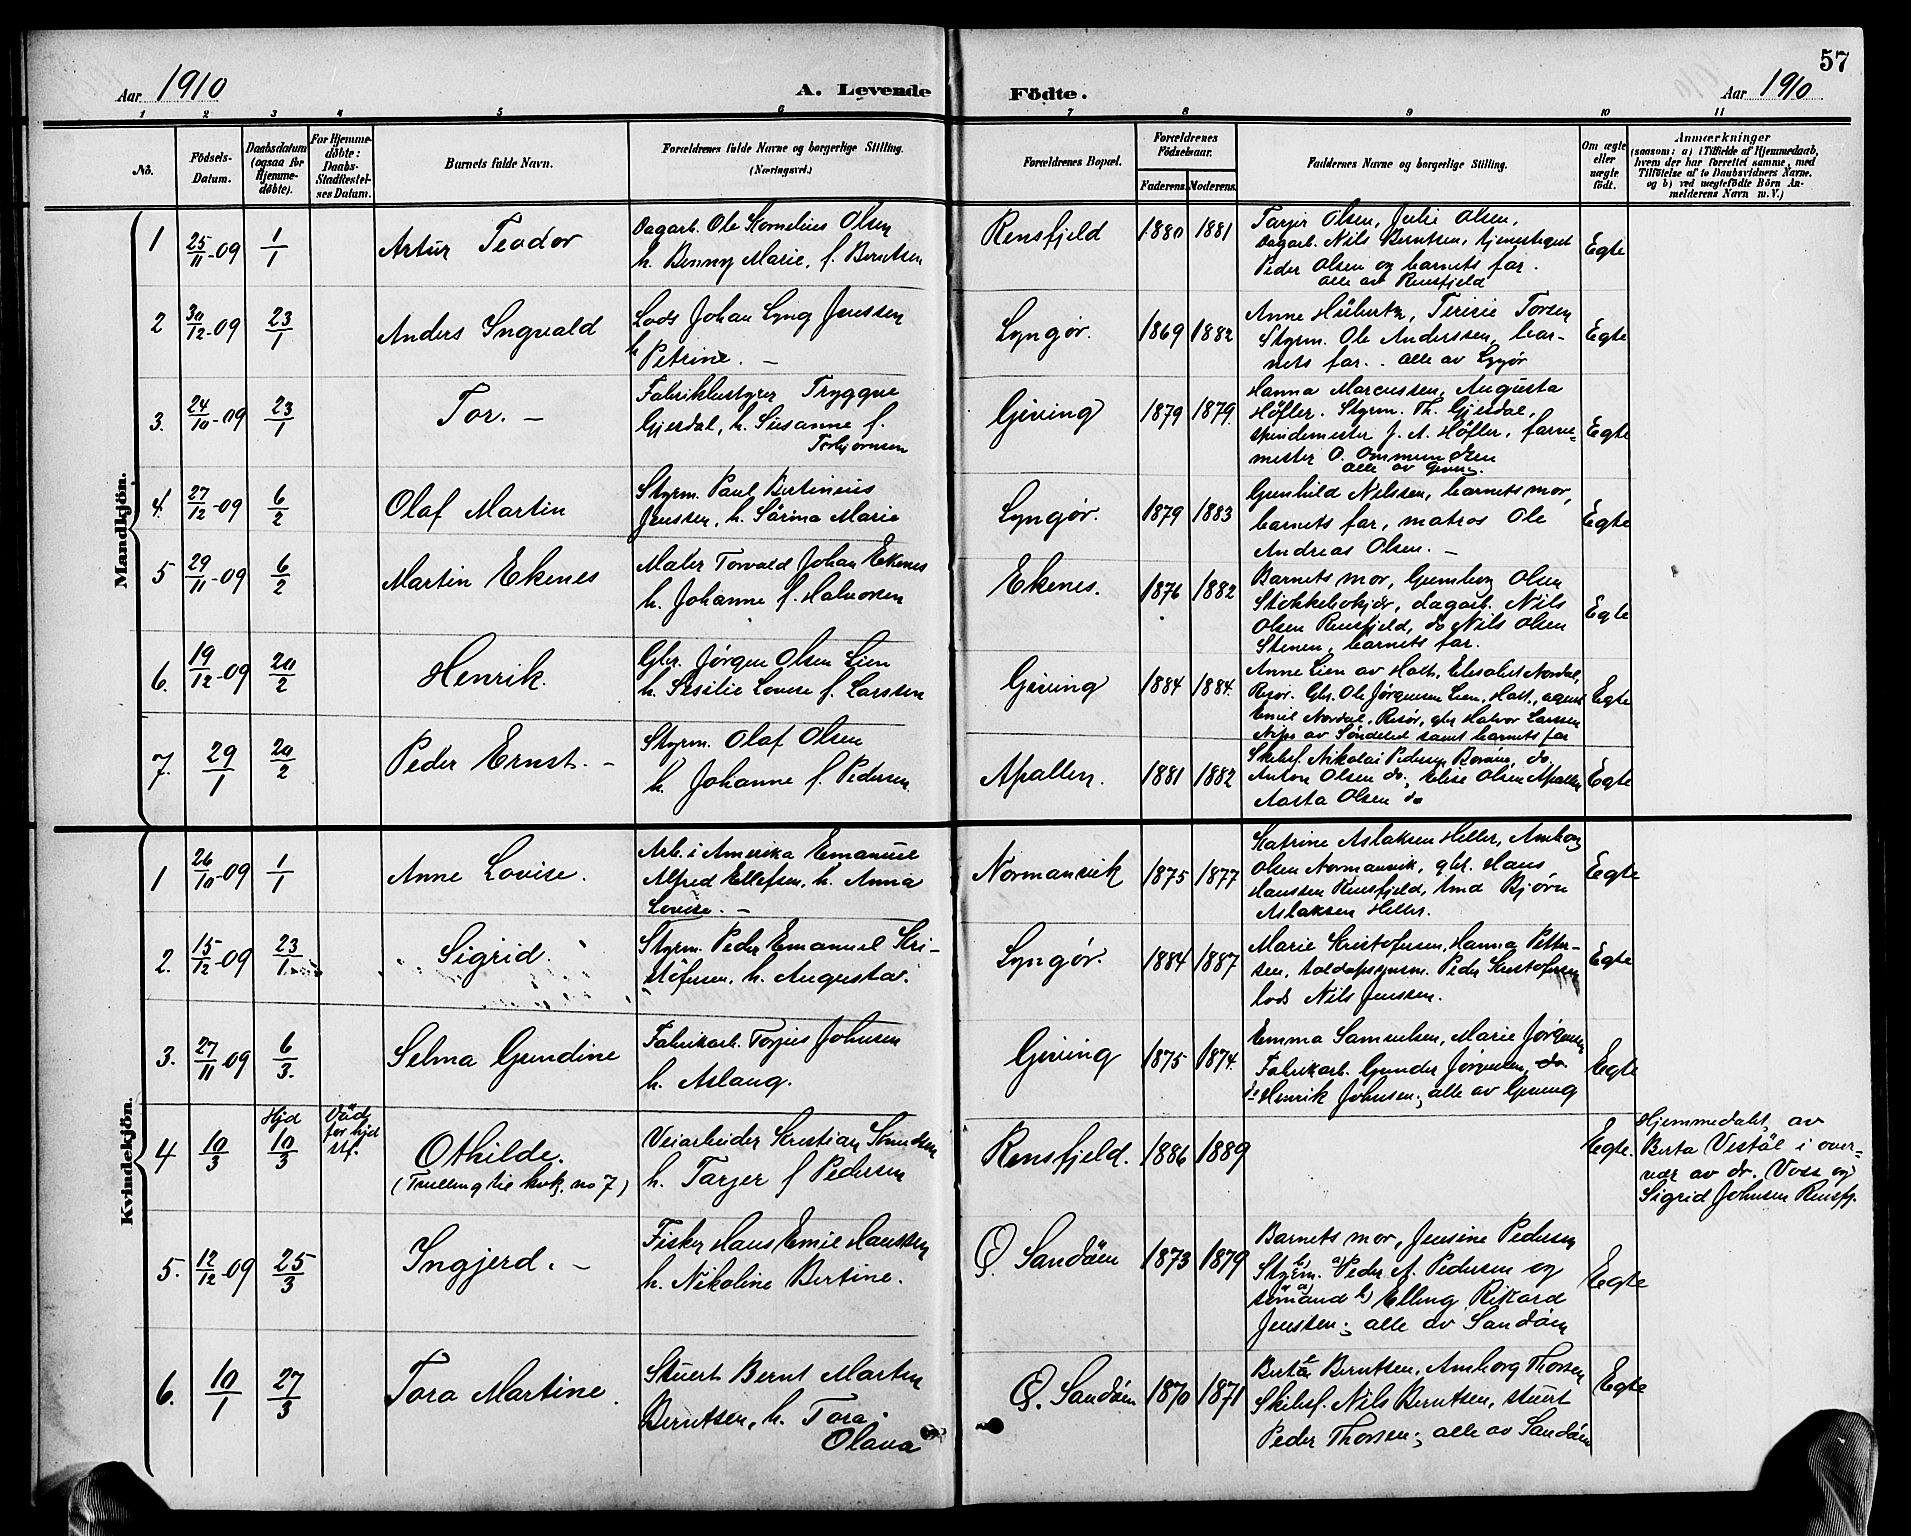 57
Aar 1910 A. Levende Födte. Aar 1910
1 2 3 4 5 6 7 8 9 10 11
No.
Födsels-Datum.
Daabsdatum (ogsaa for Hjemme-döbte).
For Hjemme-döbte: Daabs-Stadfæstel-ses Datum.
Barnets fulde Navn.
Forældrenes fulde Navne og borgerlige Stilling.
(Næringsvei.)
Forældrenes Bopæl.
Forældrenes Födselsaar.
Faderens. Moderens.
Faddernes Navne og borgerlige Stilling.
Om ægte eller uægte født.
Anmærkninger
(saasom: a) i Tilfælde af Hjemmedaab,
hvem der har forrettet samme, med
Tilföielse af to Daabsvidners Navne.
og b) ved uægtefödte Börn An-
melderens Navn m. V.)
Mandkjön.
1 25/11-09 1/1 Artur Teodor
Dagarb. Ole Kornelius Olsen
h. Benny Marie, f. Berntsen
Rensfjeld 1880 1881
Tarjer Olsen, Julie Olsen,
Dagarb. Nils Berntsen, tjenestegut
Peder Olsen og barnets far.
alle av Rensfjeld
Egte
2 30/12-09 23/1 Anders Ingvald
Lods Johan Lyng Jenssen
h Petrine. –
Lyngør. 1869 1882
Anne Hubertz, Teresie Torsen
Styrm. Ole Anderssen, bar-
nets far. . alle av Lyngør
Egte
3. 24/10-09 23/1 Tor. –
Fabrikbestyrer Tryggve
Gjerdal, h. Susanne f.
Torbjørnsen
Giving 1879 1879.
Hanna Marcussen, Augusta
Høfler. Styrm. Th. Gjerdal,
spindemester J. A. Høfler, farve-
mester O. Ommundsen
alle av Giving.
Egte
4. 27/12-09 6/2 Olaf Martin
Styrm. Paul Bertineus
Jenssen, h. Sărina Marie
Lyngør. 1879 1883
Gunhild Nilssen, barnets mor,
barnets far, matros Ole
Andreas Olsen. –
Egte
5 29/11-09 6/2 Martin Ekenes
Maler Torvald Johan Ekenes
h. Johanne f. Halvorsen
Ekenes. 1876 1882
Barnets mor, Gunborg Olsen
Stokkebokjær, dagarb. Nils
Olsen Rensfjeld, do Nils Olsen
Stenen, barnets far.
Egte
6. 19/12-09 20/2 Henrik.
Gbr. Jørgen Olsen Lien
h. Sesilie Lovise f. Larssen
Giving 1884 1884.
Anne Lien av Holt, Elisabet Nordal,
Risør. Gbr. Ole Jørgensen Lien, Holt, agent
Emil Nordal, Risør, gbr Halvor Larssen
av Søndeled samt barnets far
Egte
7. 29/1 20/2 Peder Ernst. –
Styrm. Olaf Olsen
h. Johanne f. Pedersen
Apallen. 1881 1882
Skibsf. Nikolai Pedersen Borøen, do.
Anton Olsen do, Elise Olsen Apallen
Aasta Olsen do
Egte
Kvindekjön.
1 26/10-09 1/1 Anne Lovise.
Arb. i Amerika Emanuel
Alfred Ellefsen, h. Anna
Lovise. –
Normansvik 1875 1877
Katrine Aslaksen Heller, Amborg
Olsen Normansvik, gbr. Hans
Hanssen Rensfjeld, Bjørn
Aslaksen Heller.
Egte
2. 15/12-09 23/1 Sigrid.
Styrm. Peder Emanuel Kri-
stofersen, h. Augusta.
Lyngør. 1884 1887
Marie Kristofersen, Hanna Petter-
sen, toldopsynsm. Peder Kristofersen
lods Nils Jenssen.
Egte
3. 27/11-09 6/3. Selma Gundine
Fabrikarb. Torjus Johnsen
h. Aslaug.
Giving 1875 1874.
Emma Samuelsen, Marie Jørgensen
Fabrikarb. Gunder Jørgensen, do
Henrik Johnsen, alle av Giving
Egte
4 10/3 Hjd 10/3 Død før hjd stf.
Othilde.
(Tvilling til kvk. no 7)
Veiarbeider Kristian Svendsen
h. Tarjer f Pedersen
Rensfjeld. 1886 1889
Egte.
Hjemmedøbt av
Berta Vestøl i over-
vær av dr. Voss og
Sigrid Johnsen Rensfj.
5. 12/12-09 25/3 Ingjerd. –
Fisker Hans Emil Hanssen
h. Nikoline Bertine.
Ø. Sandøen 1873 1879
Barnets mor, Jensine Pedersen
Styrm. Peder A. Pedersen og
sømand Elling Rikard
Jenssen; alle av Sandøen
Egte
6. 10/1 27/3 Tora Martine.
Stuert Bernt Martin
Berntsen, h. Tora
Olava
Ø. Sandøen 1870 1871
Berte Berntsen, Amborg Thorsen
Skibsf. Nils Berntsen, stuert
Peder Thorsen; alle av Sandøen
Egte